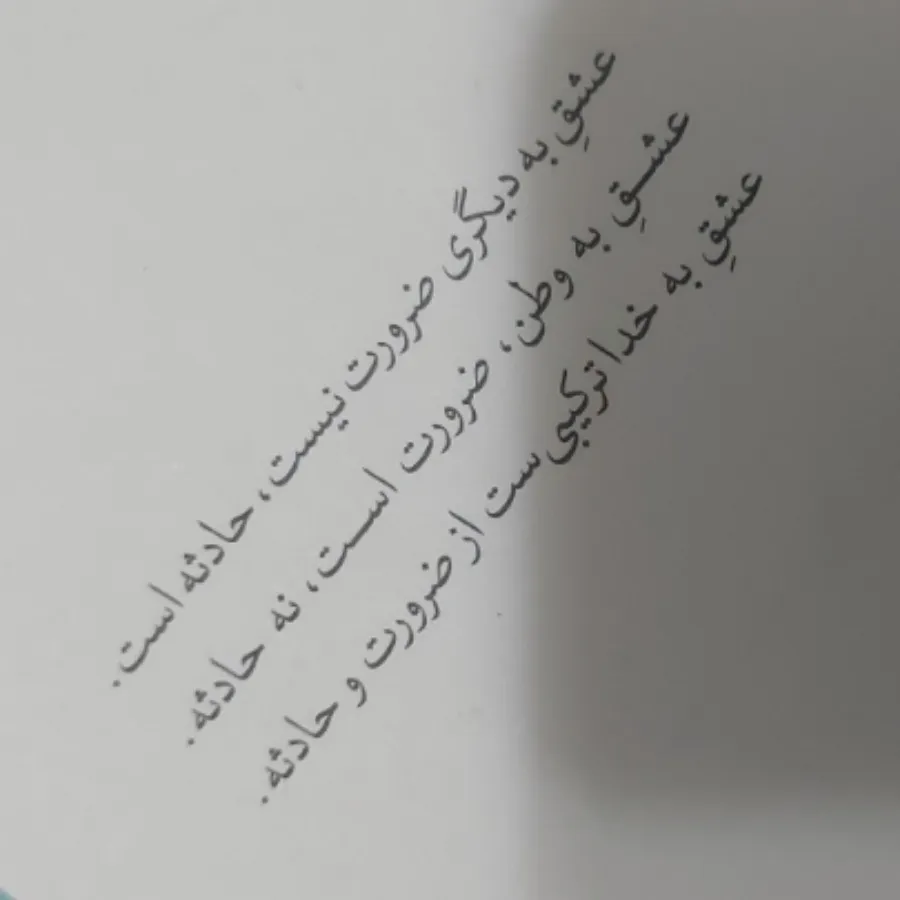 عشقِ به دیگری ضرورت نیست، حادثه است.
عشقِ به وطن، ضرورت است، نه حادثه.
عشقِ به خدا ترکیبی‌ست از ضرورت و حادثه.